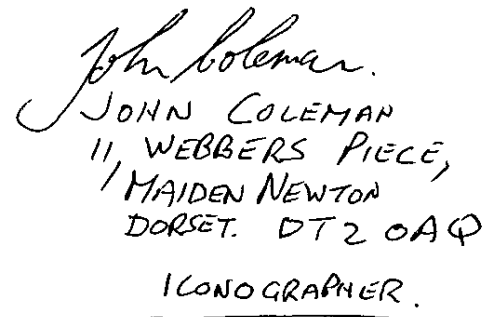 John Coleman.
JOHN COLEMAN
11, WEBBERS PIECE,
MAIDEN NEWTON
DORSET. DT2 0AQ
ICONOGRAPHER.